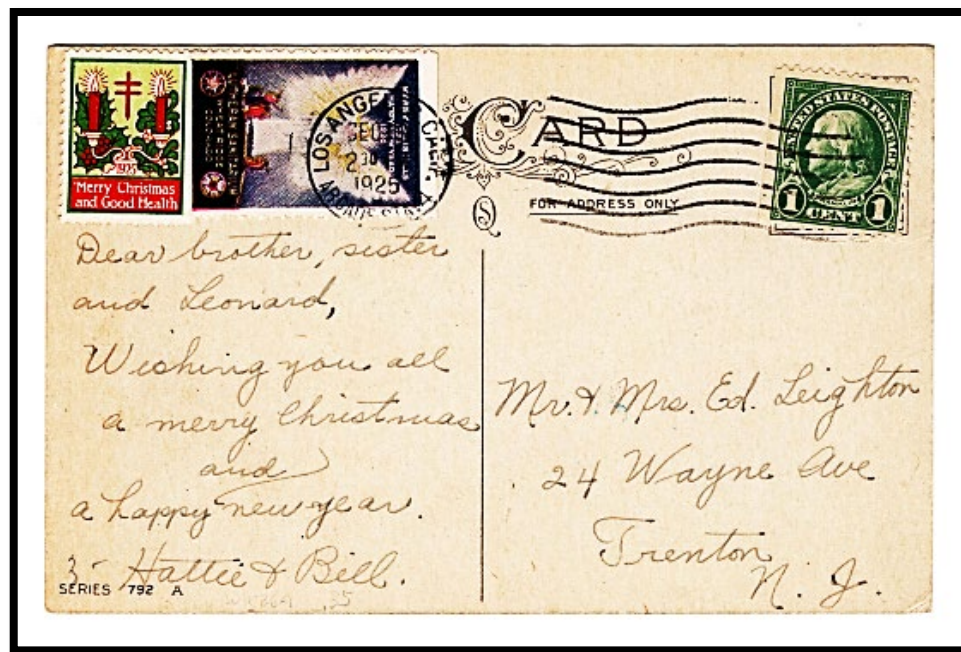 1925
Merry Christmas
and Good Health
LOS ANGELES
CALIF.
DEC
2 30
1925
CARD
FOR ADDRESS ONLY
UNITED STATES POSTAGE
1 CENT 1
Dear brother, sister
and Leonard,
Wishing you all
a merry Christmas
and
a happy new year.
Hattie & Bill.
SERIES 792 A
Mr. & Mrs. Ed. Leighton
24 Wayne Ave
Trenton
N. J.